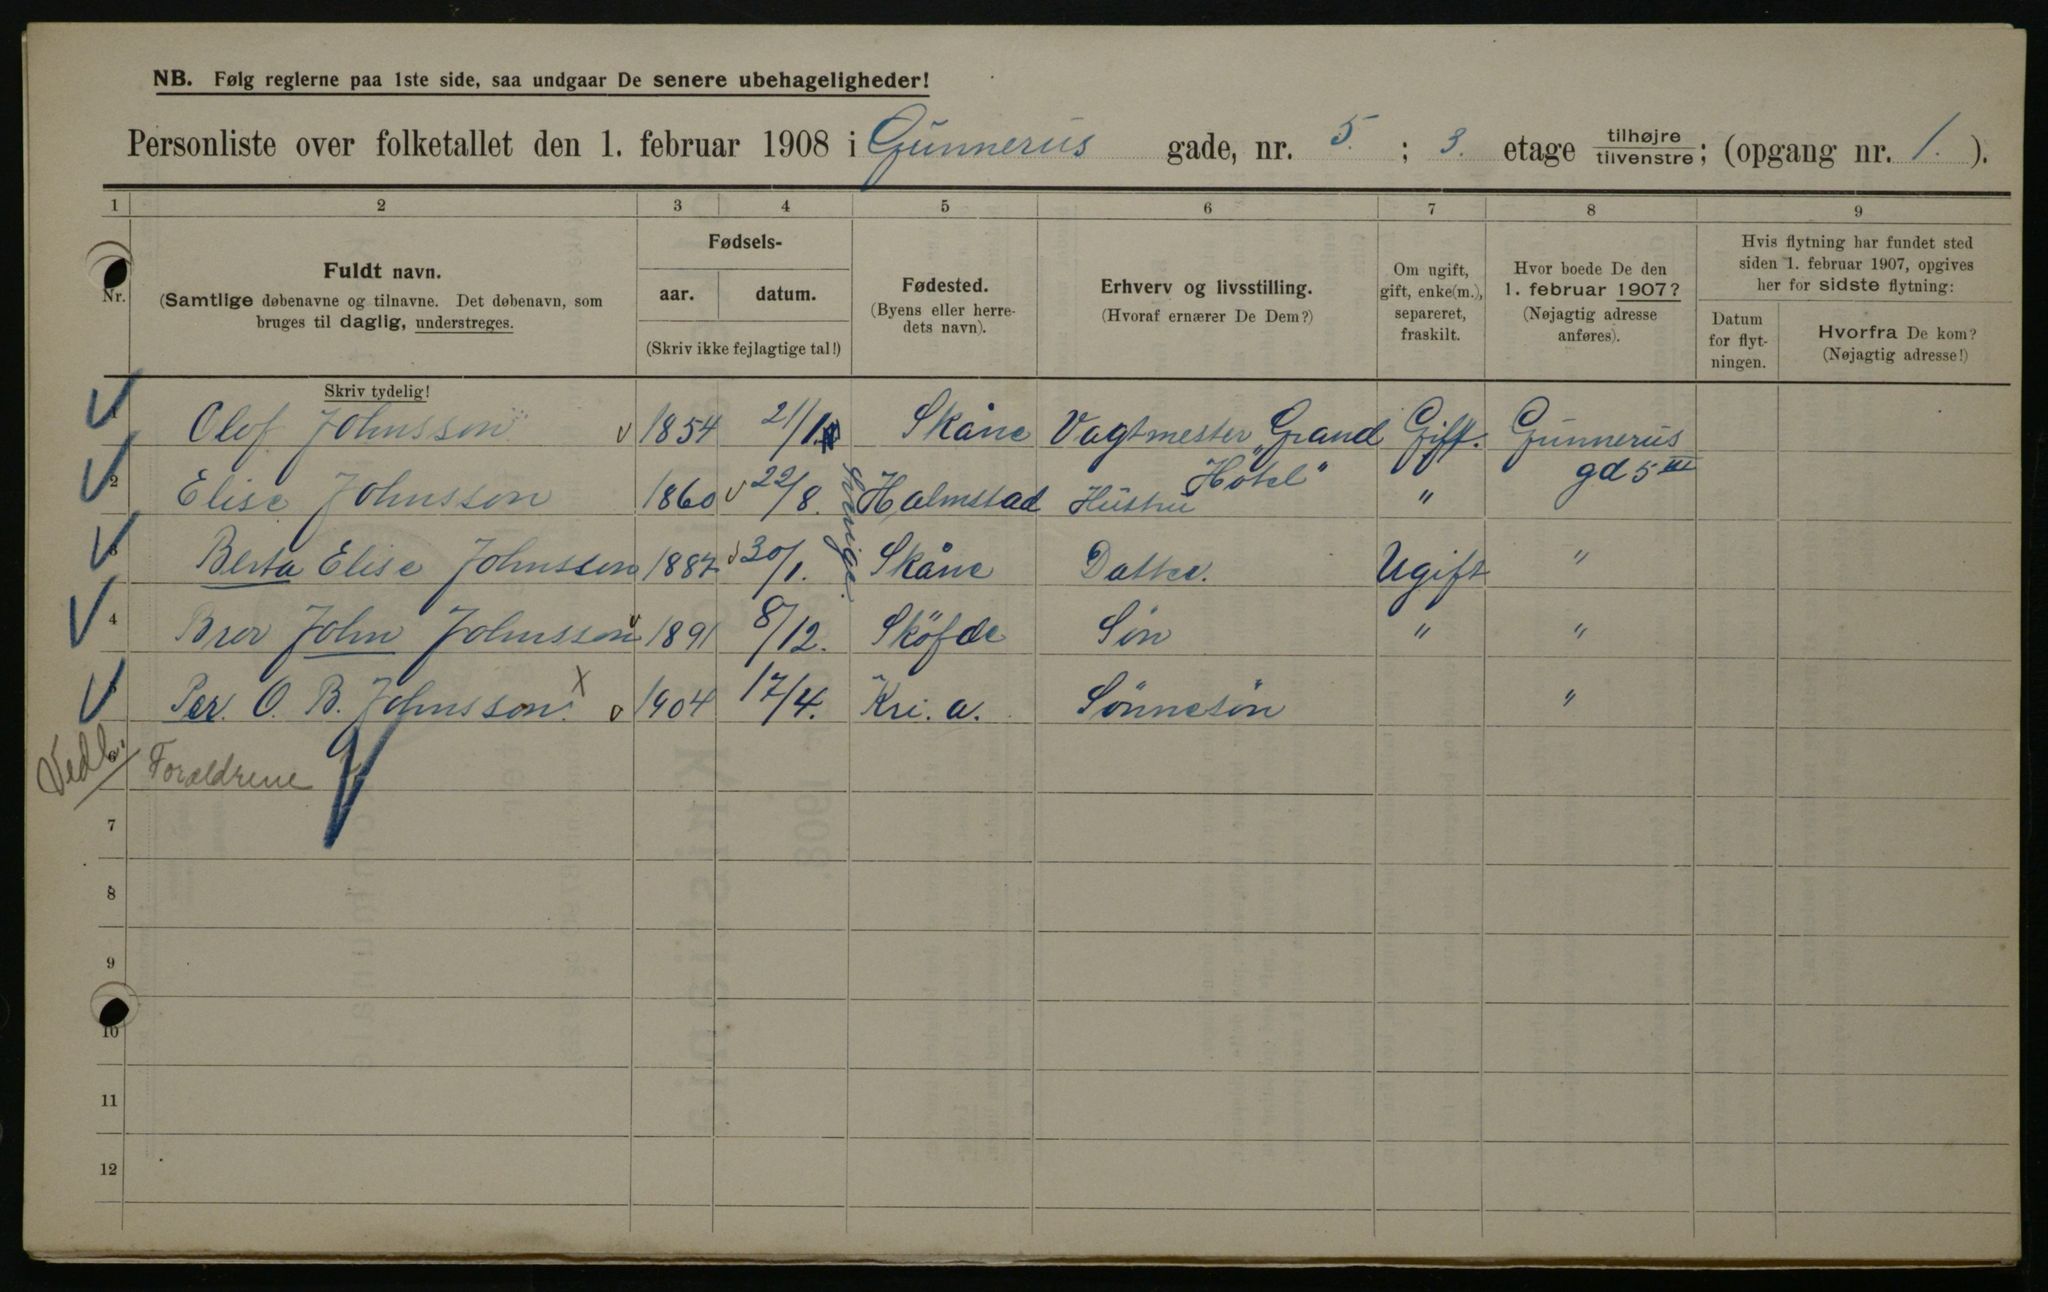 NB. Følg reglerne paa 1ste side, saa undgaar De senere ubehageligheder!
Personliste over folketallet den 1. februar 1908 i Gunnerus gade, nr. 5. ; 3. etage tilhøjre/tilvenstre; (opgang nr. 1. ).
1 2 3 4 5 6 7 8 9
Nr.
Fuldt navn.
(Samtlige døbenavne og tilnavne. Det døbenavn, som
bruges til daglig, understreges.
Skriv tydelig!
Fødsels-
aar. datum.
(Skriv ikke fejlagtige tal!)
Fødested.
(Byens eller herre-
dets navn).
Erhverv og livsstilling.
(Hvoraf ernærer De Dem?)
Om ugift,
gift, enke(m.),
separeret,
fraskilt.
Hvor boede De den
1. februar 1907?
(Nøjagtig adresse
anføres).
Hvis flytning har fundet sted
siden 1. februar 1907, opgives
her for sidste flytning:
Datum
for flyt-
ningen.
Hvorfra De kom?
(Nøjagtig adresse!)
1 Olof Johnsson 1854 21/1 Skåne Vagtmester "Grand Hotel" Gift. Gunnerus gd 5 III
2 Elise Johnsson 1860 22/8. Halmstad Hustru "
Sverige.
3 Berta Elise Johnsson 1887 30/1. Skåne Datter. Ugift "
4 Bror John Johnsson 1891 8/12. Sköfde Sön " "
5 Per. O. B. Johnsson. X 1904 17/4. Kri. a. Sönnesön "
Vedl.
6 Forældrene
7
8
9
10
11
12